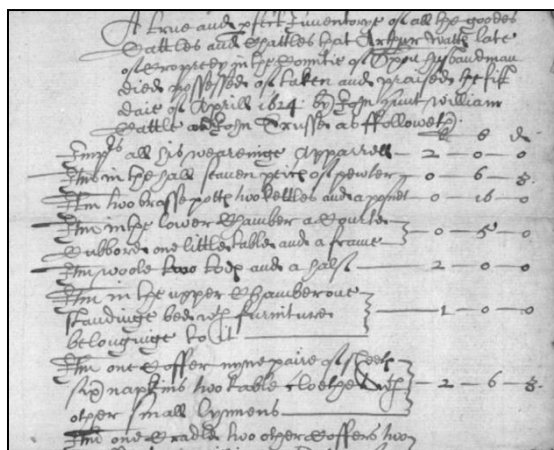 A true and pfect Inventorye of all the goodes
Cattles and Chattles that Arthur Watts late
of Cropredy in the Countie of Oxon husbandman
died possessed of taken and praised the
daie of Aprill 1624 by John Hunt William
Battle and John Trusse as ffolloweth
li s d
Imprs all his wearinge Apparrell 2 0 0
Itm in the hall seaven peices of pewter 0 6 8
Itm two brasse potts two kettles and a posnet 0 16 0
Itm in the lower Chamber a Courte
Cubbord one little table and a frame 0 5 0
Itm woole two todes and a halfe 2 0 0
Itm in the upper Chamber one
standinge bed wth furniture 1 0 0
belonginge to it
Itm one Coffer nyne paire of sheets
six napkins two table clothes wth 2 6 8
other small lynnens
Itm one Cradle two other Coffers two